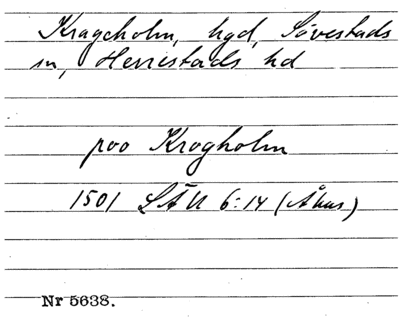 Krageholm, hgd, Sövestads
sn, Herrestads hd
poo Krogholm
1501 LÄU 6:14 (Åhus)
Nr 5638.